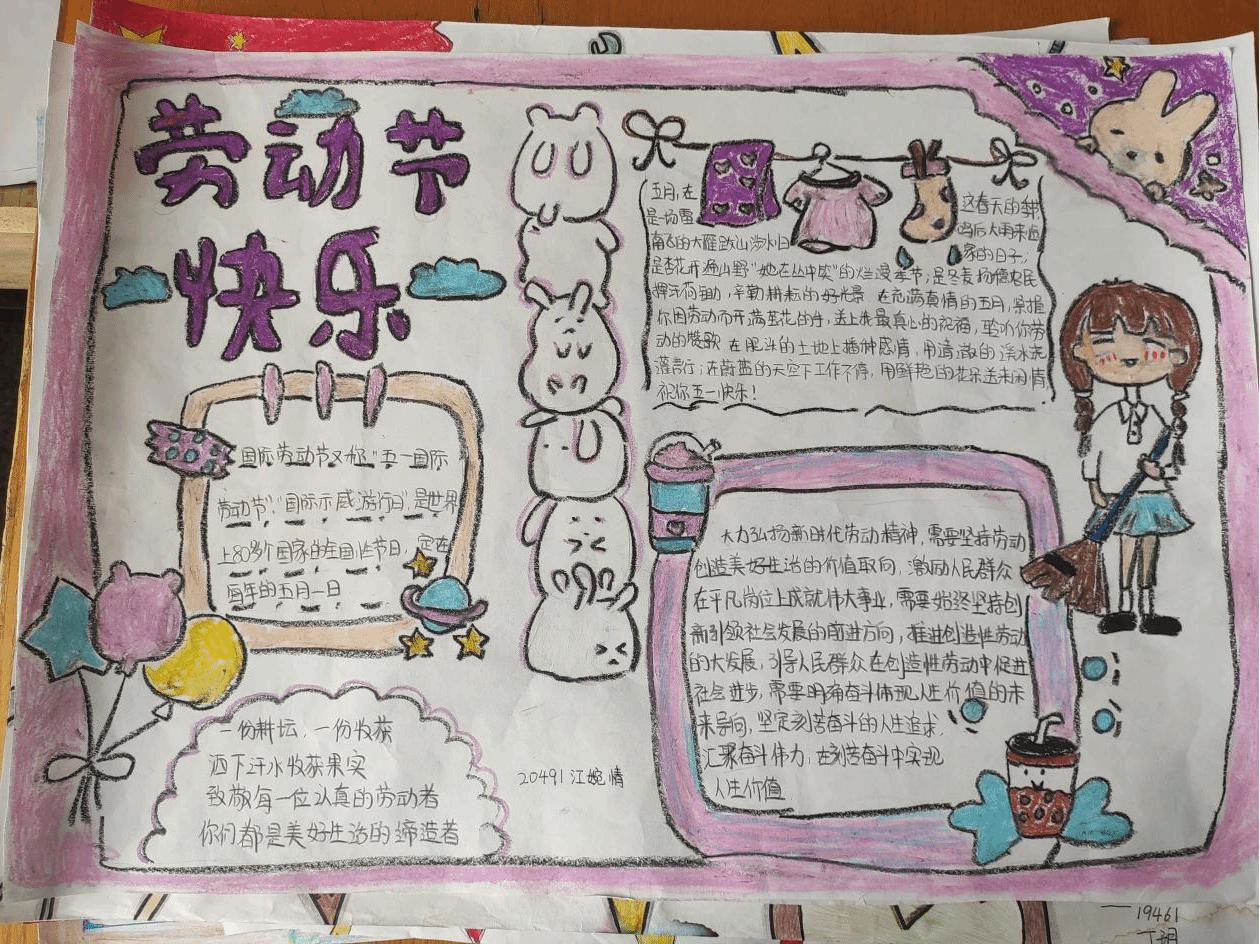 劳动节
快乐
五月,在
这春天的
是一场雷
鸣后大雨来临
南飞的大雁跋山涉水归
家的日子,
是杏花开遍山野"她在丛中笑"的烂漫季节;是冬麦扬穗农民
辛勤耕耘的好光景 在充满真情的五月,
你因劳动而开满茧花的手,送上我最真心的祝福,聆听你劳
动的赞歌 在肥沃的土地上播种感情,用清澈的溪水
在蔚蓝的天空下工作不停,用鲜艳的花朵送来闲情,
祝你五一快乐!
国际劳动节又称"五一国际
劳动节""国际示威游行日",是世界
上80多个国家的全国性节日,定在
每年的五月一日
大力弘扬新时代劳动精神,需要坚持劳动
创造美好生活的价值取向,激励人民群众
在平凡岗位上成就伟大事业,需要始终坚持创
新引领社会发展的前进方向,推进创造性劳动
的大发展,引导人民群众在创造性劳动中促进
社会进步,需要明确奋斗体现人生价值的未
来导向,坚定刻苦奋斗的人生追求,
汇聚奋斗伟力,在刻苦奋斗中实现
人生价值
一份耕坛,一份收获
洒下汗水收获果实
致敬每一位认真的劳动者
你们都是美好生活的缔造者
20491 江婉情
19461